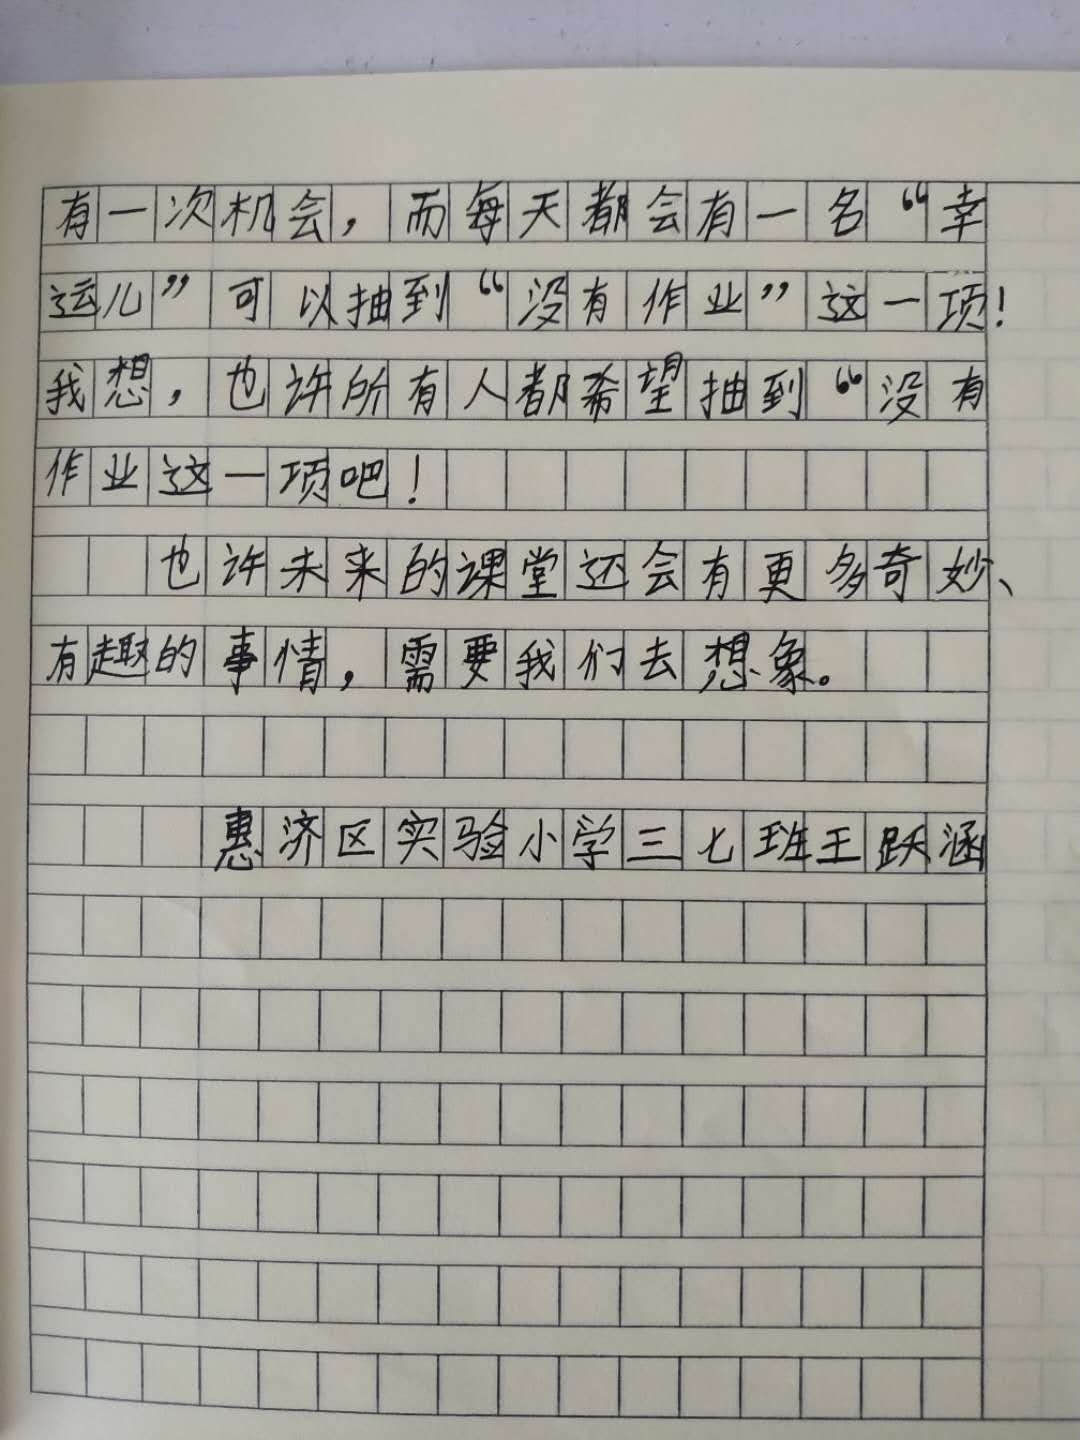 有一次机会，而每天都会有一名“幸
运儿”可以抽到“没有作业”这一项！
我想，也许所有人都希望抽到“没有
作业这一项吧！
也许未来的课堂还会有更多奇妙、
有趣的事情，需要我们去想象。
惠济区实验小学三七班王跃涵